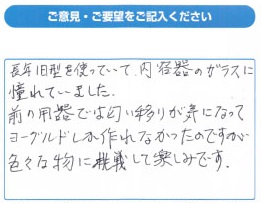 ご意見・ご要望をご記入ください
長年旧型を使っていて、内容器のガラスに
憧れていました.
前の用器では匂い移りが気になって
ヨーグルドしか作れなかったのですが
色々な物に挑戦して楽しみです.